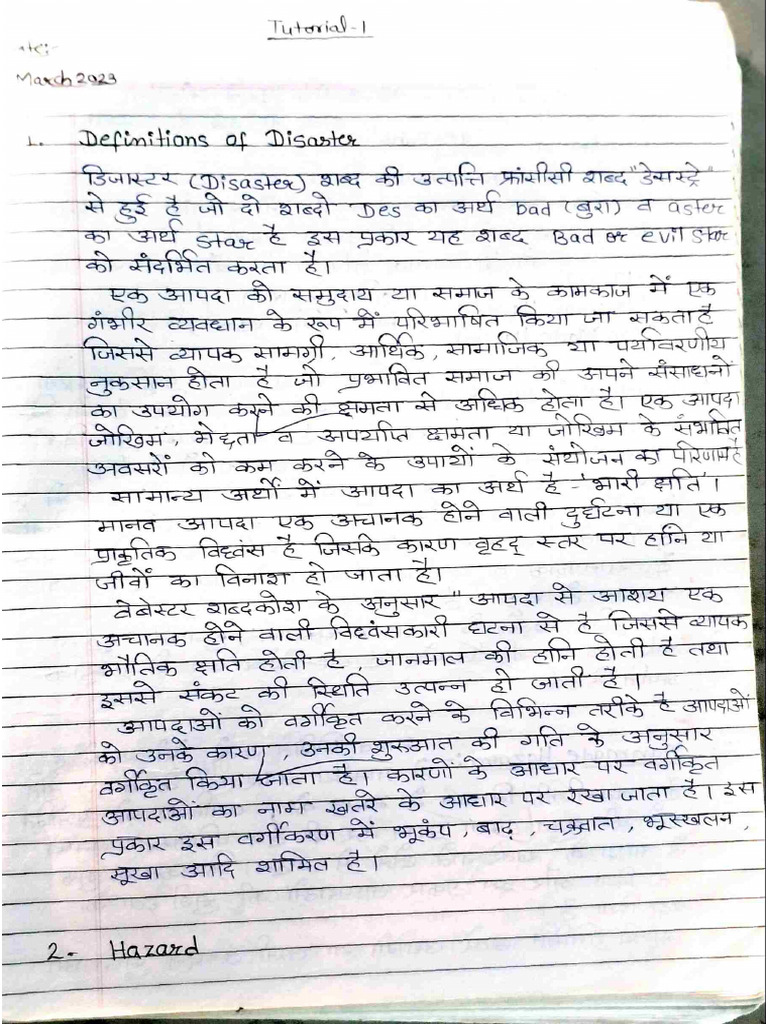 Tutorial-1
March 2023
1. Definitions of Disaster
डिजास्टर (Disaster) शब्द की उत्पत्ति फ्रांसीसी शब्द "डेसस्ट्रे"
से हुई है जो दो शब्दो Des का अर्थ bad (बुरा) व aster
का अर्थ star है इस प्रकार यह शब्द Bad or evil star
को संदर्भित करता है।
एक आपदा को समुदाय या समाज के कामकाज में एक
गंभीर व्यवधान के रूप में परिभाषित किया जा सकता है
जिससे व्यापक सामग्री, आर्थिक, सामाजिक या पर्यावरणीय
नुकसान होता है जो प्रभावित समाज की अपने संसाधनों
का उपयोग करने की क्षमता से अधिक होता है। एक आपदा
जोखिम, भेद्यता व अपर्याप्त क्षमता या जोखिम के संभावित
अवसरों को कम करने के उपायों के संयोजन का परिणाम है
सामान्य अर्थो में आपदा का अर्थ है - 'भारी क्षति'।
मानव आपदा एक अचानक होने वाली दुर्घटना या एक
प्राकृतिक विध्वंस है जिसके कारण वृहद् स्तर पर हानि या
जीवों का विनाश हो जाता है।
वेबेस्टर शब्दकोश के अनुसार "आपदा से आशय एक
अचानक होने वाली विध्वंसकारी घटना से है जिससे व्यापक
भौतिक क्षति होती है जानमाल की हानि होती है तथा
इससे संकट की स्थिति उत्पन्न हो जाती है।
आपदाओं को वर्गीकृत करने के विभिन्न तरीके है आपदाओं
को उनके कारण, उनकी शुरुआत की गति के अनुसार
वर्गीकृत किया जाता है। कारणों के आधार पर वर्गीकृत
आपदाओं का नाम खतरे के आधार पर रखा जाता है। इस
प्रकार इस वर्गीकरण में भूकंप, बाढ़, चक्रवात, भूस्खलन,
सूखा आदि शामिल है।
2. Hazard